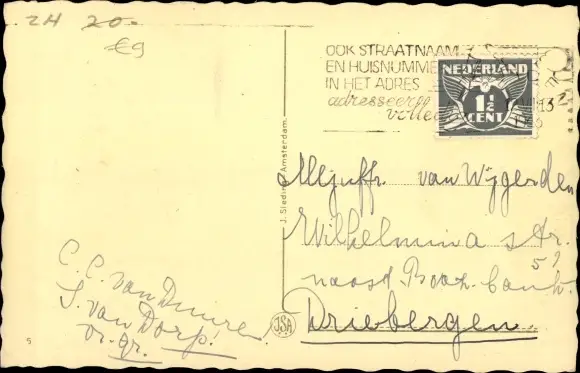 ZH 20-
€9
OOK STRAATNAAM
EN HUISNUMME
IN HET ADRES
adresseer
volle
NEDERLAND
1½
CENT
J. Sleding, Amsterdam.
Mejuffr. van Wijgerden
Wilhelmina str.
51
naast Boaz-bank.
Driebergen.
C. C. van Duuren
S. van Dorp.
vr. gr.
JSA
5